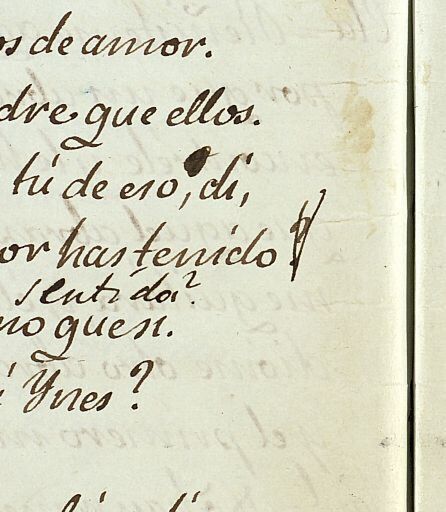 os de amor.
dre que ellos.
tú de eso, di,
or has tenido?
sentido?
no que si.
Ynes?